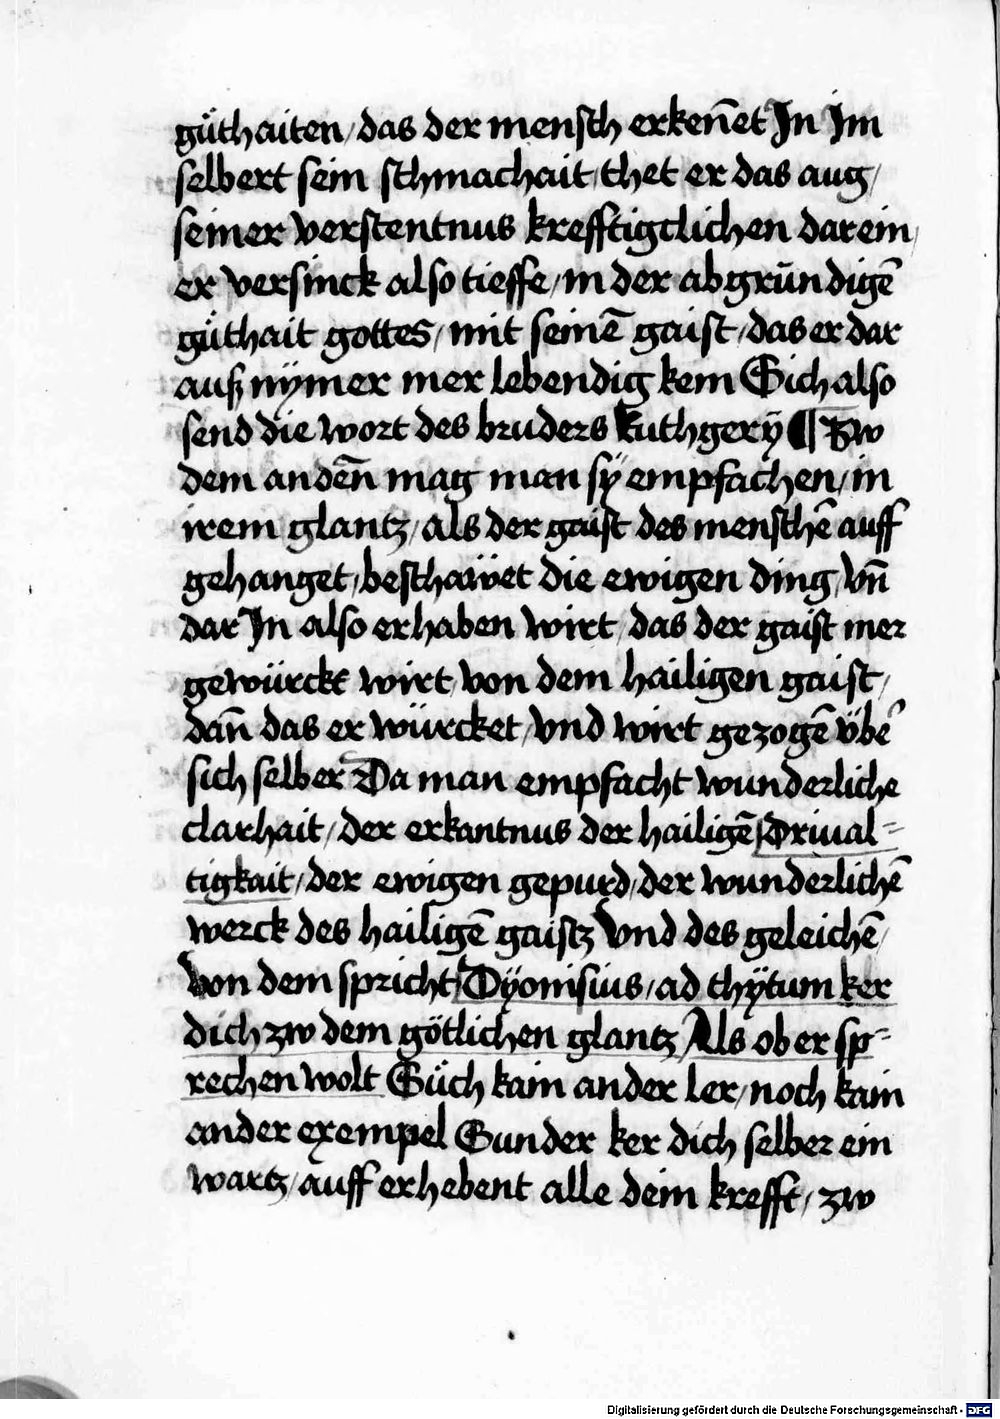 güthaiten / das der mensch erken̄et In Im
selbert sein schmachait / thet er das aug /
seiner verstentnus krefftigclichen darein /
er versinck also tieffe / in der abgründigē
güthait gottes / mit seinē gaist / das er dar
auß nÿmer mer lebendig kem Sich also
send die wort des bruders Ruthgerÿ ¶ Zw
dem anden̄ mag man sÿ empfachen / in
irem glantz / als der gaist des menschē auff
gehanget / beschawet die ewigen ding / vn̄
dar In also erhaben wirt / das der gaist mer
gewürckt wirt von dem hailigen gaist /
dan̄ das er würcket / vnd wirt gezogē übē
sich selber Da man empfacht wunderliche
clarhait / der erkantnus der hailigē Driual=
tigkait / der ewigen gepurd / der wunderlichē
werck des hailigē gaistz Vnd des geleichē /
von dem spricht Dÿonisius / ad thÿtum ker
dich zw dem götlichen glantz Als ob er sp=
rechen wolt Süch kain ander ler / noch kain
ander exempel Sunder ker dich selber ein
wartz / auff erhebent alle dein krefft / zw
Digitalisierung gefördert durch die Deutsche Forschungsgemeinschaft - DFG